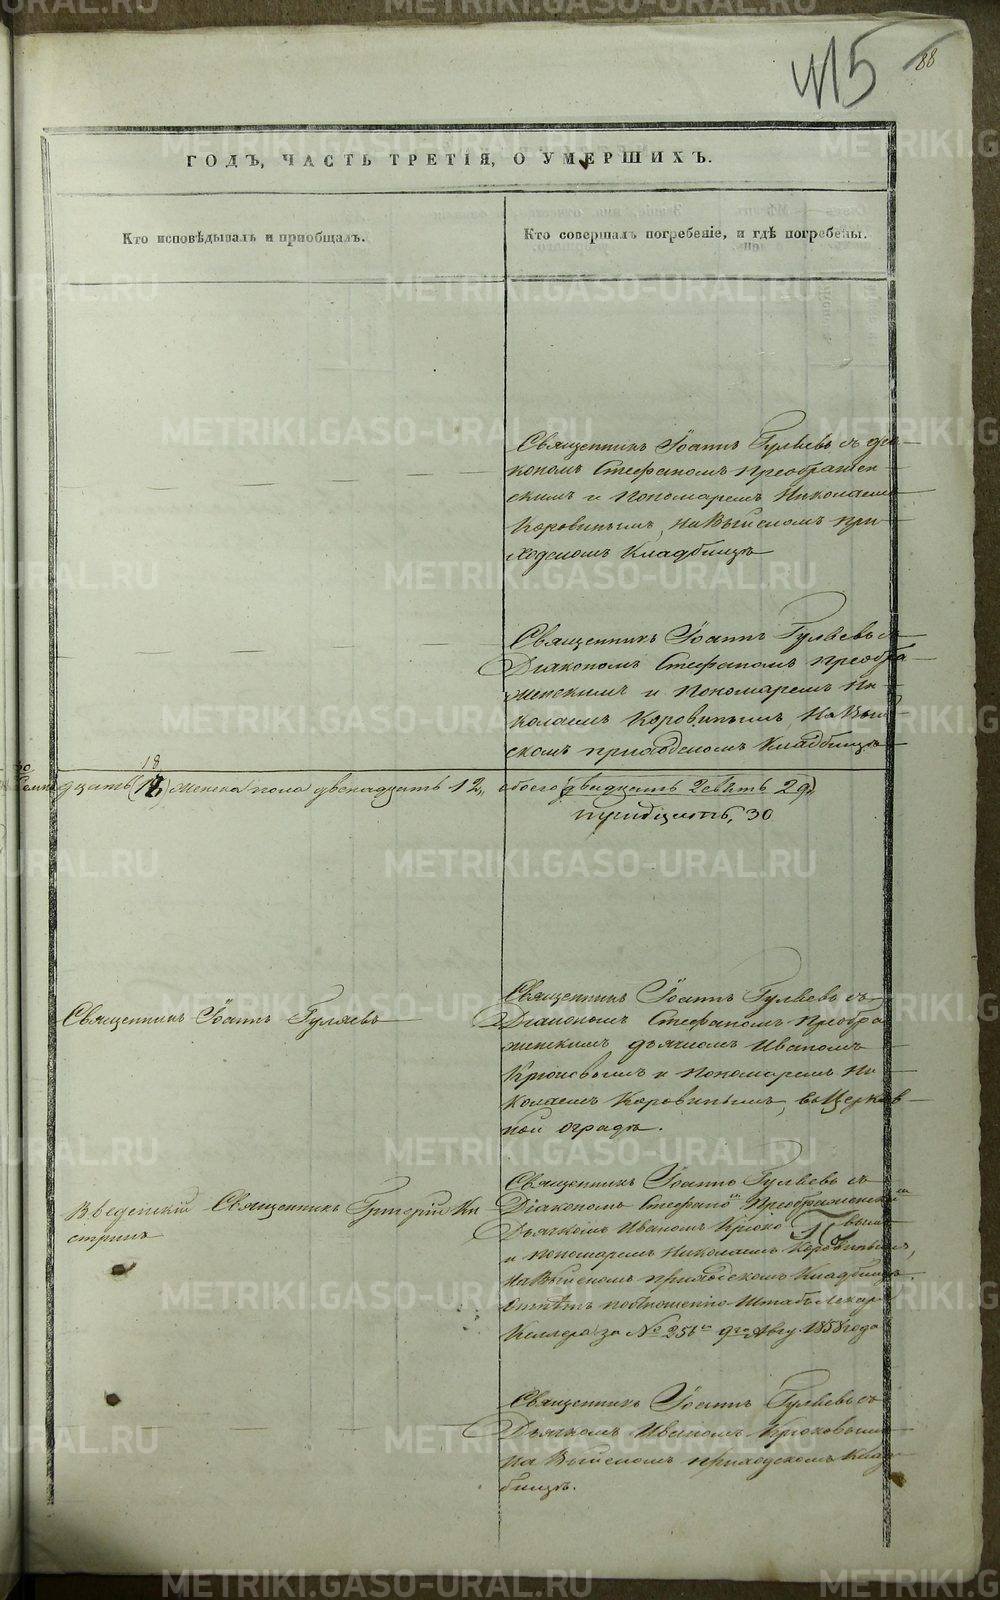 115 88
ГОДЪ, ЧАСТЬ ТРЕТІЯ, О УМЕРШИХЪ.
Кто исповѣдывалъ и пріобщалъ.
Кто совершалъ погребеніе, и гдѣ погребены.
Священникъ Іоаннъ Гуляевъ съ діа-
кономъ Стефаномъ Преображен-
скимъ и Пономаремъ Николаемъ
Коровинымъ, на Выйскомъ при-
ходскомъ Кладбищѣ
Священникъ Іоаннъ Гуляевъ съ
Діакономъ Стефаномъ Преобра-
женскимъ и Пономаремъ Ни-
колаемъ Коровинымъ, на Вый-
скомъ приходскомъ Кладбищѣ
18
дцать женска пола двенадцать 12, обоего (двадцать девять 29)
тридцать, 30
Священникъ Іоаннъ Гуляевъ
Священникъ Іоаннъ Гуляевъ съ
Діакономъ Стефаномъ Преобра
женскимъ дьячкомъ Иваномъ
Крюковымъ и Пономаремъ Ни
колаемъ Коровинымъ, въ Церков
ной оградѣ.
Введенскій Священникъ Григорій Ки
стринъ
Священникъ Іоаннъ Гуляевъ съ
Діакономъ Стефаномъ Преображенскимъ
Дьячкомъ Иваномъ Крюковымъ
и пономаремъ Николаемъ Коровинымъ,
на Выйскомъ приходскомъ Кладбищѣ.
Отпѣтъ по отношенію Штабъ Лекаря
Келлера за № 256 9го Авгу. 1858 года
Священникъ Іоаннъ Гуляевъ съ
Дьячкомъ Иваномъ Крюковымъ
на Выйскомъ приходскомъ Клад
бищѣ.
METRIKI.GASO-URAL.RU